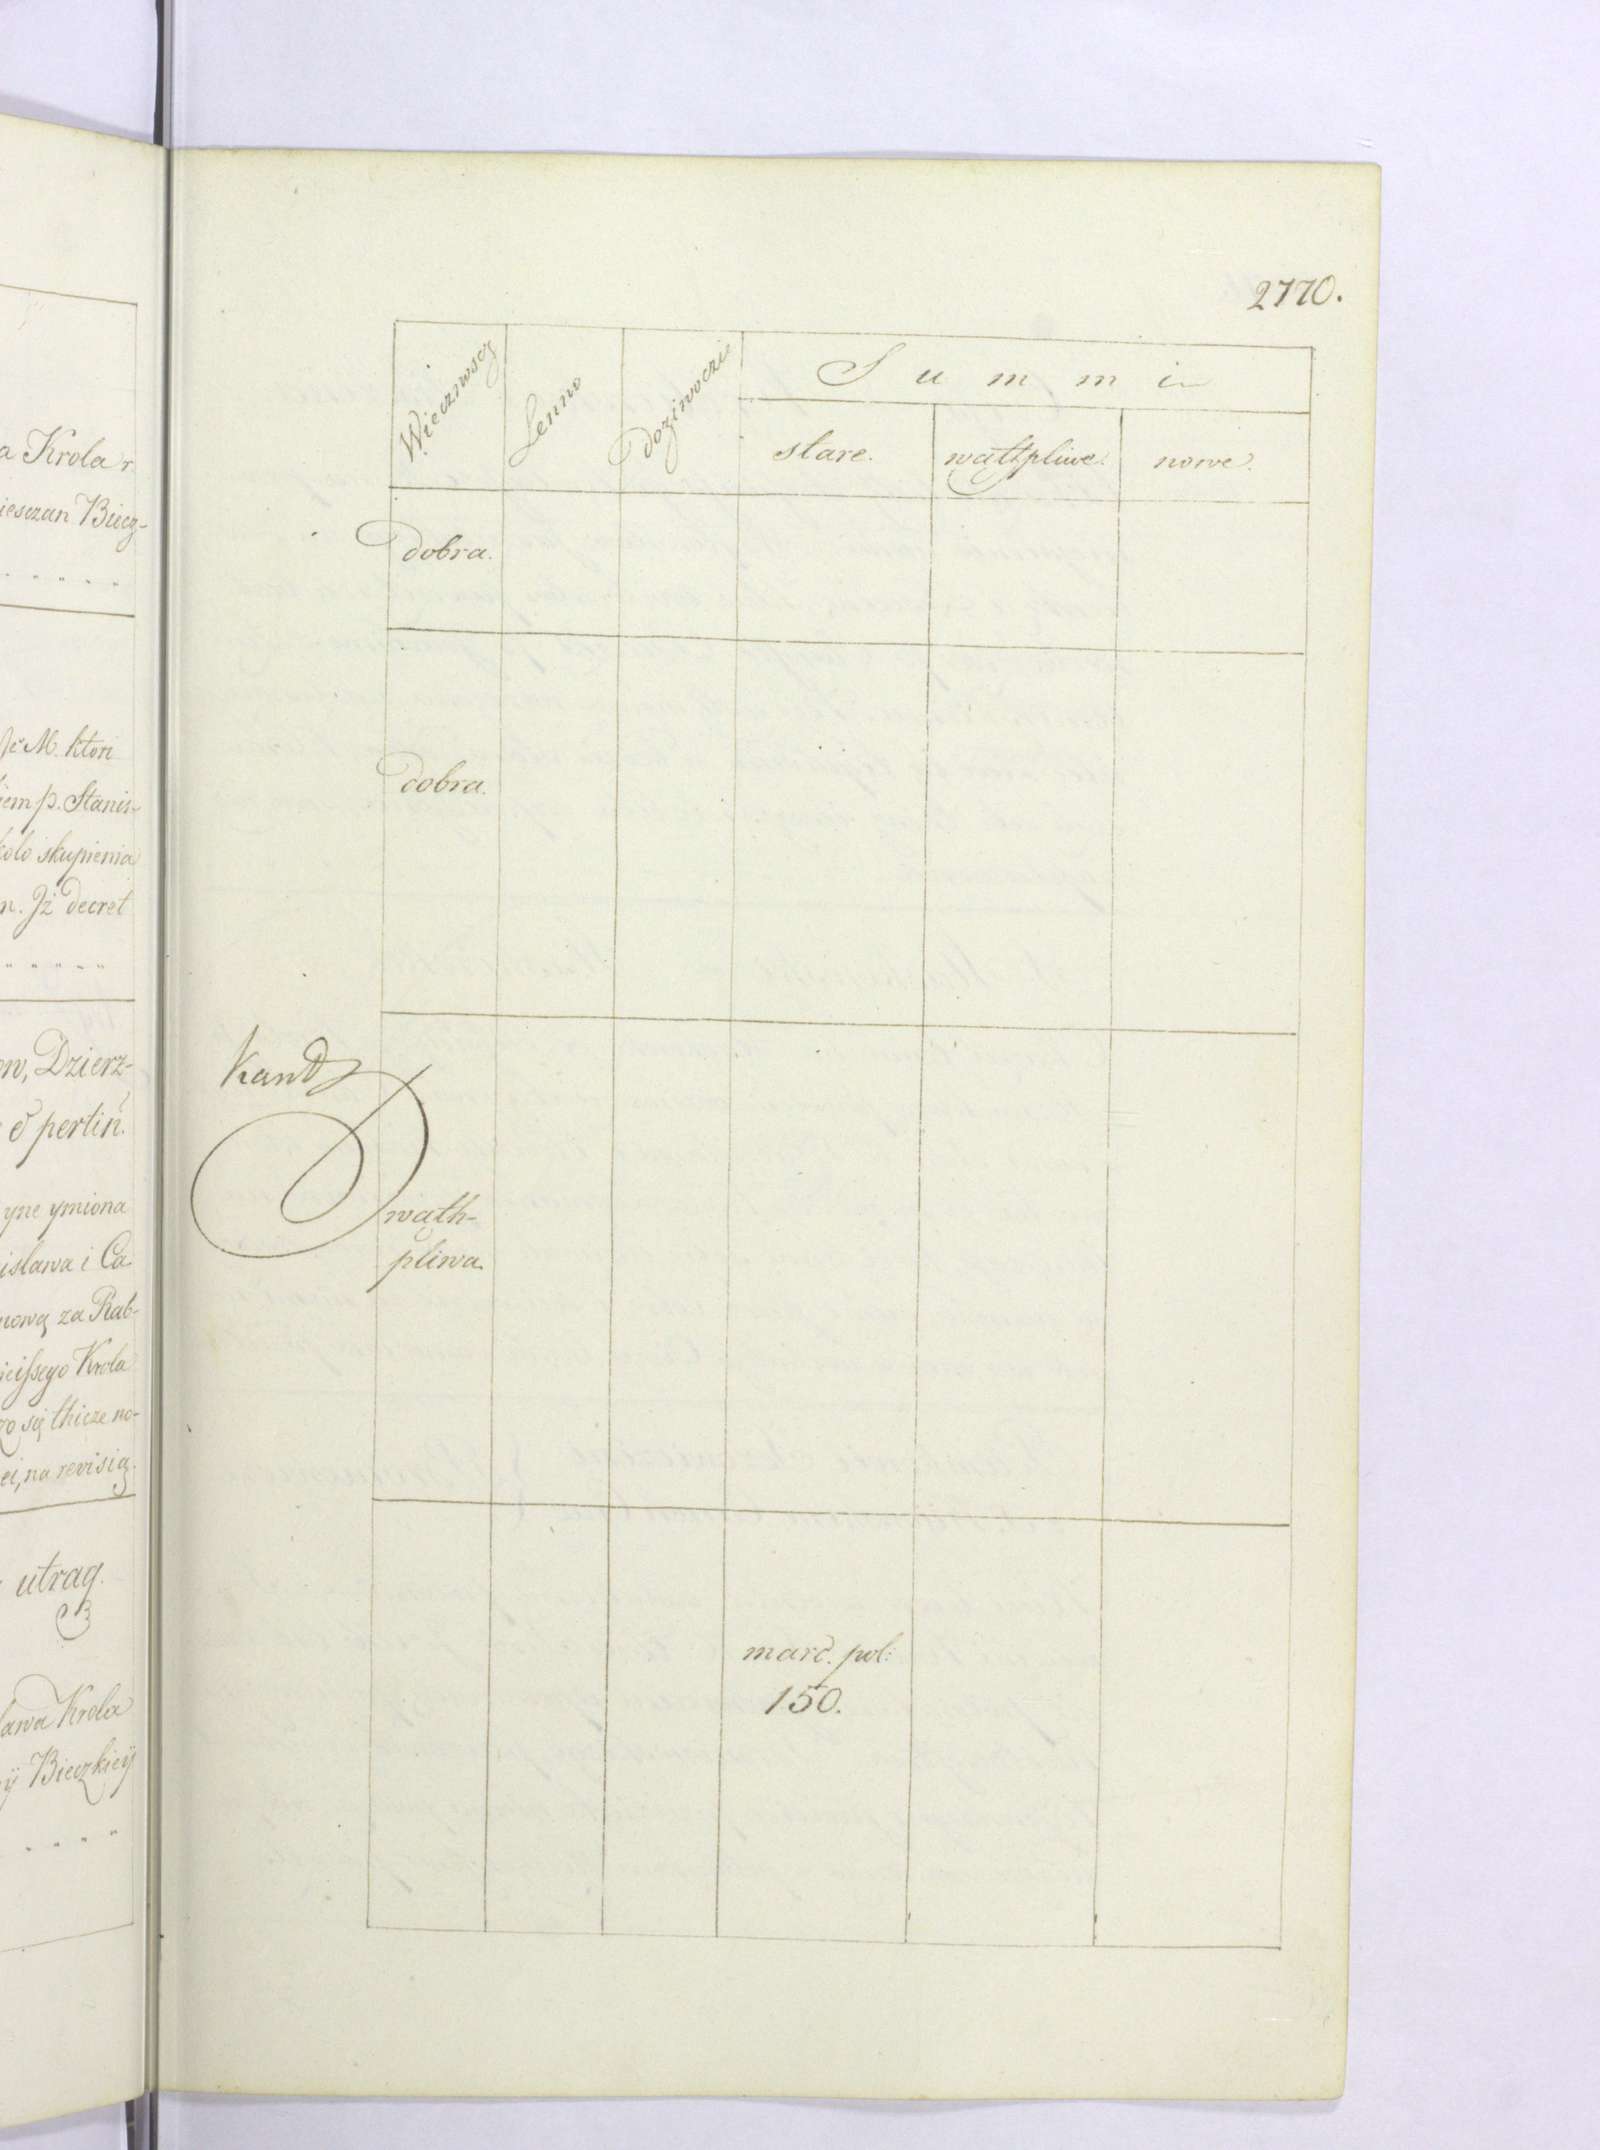 a Krola r.
iesczan Biecz-
Je M. ktori
iem p. Stanis-
kolo skupienia
n. Iż decret
ow, Dzierz-
et pertin.
yne ymiona
islawa i Ca
nową za Rab-
ieiſsego Krola
go się thicze no-
ei, na revisią.
utraq.
lawa Krola
ÿ Bieczkieÿ
2770.
Wiecznosc
Lenno
Doziwoczie
Summi
stare.
wąthpliwe.
nowe.
dobra.
dobra.
wąth-
pliwa.
marc. pol:
150.